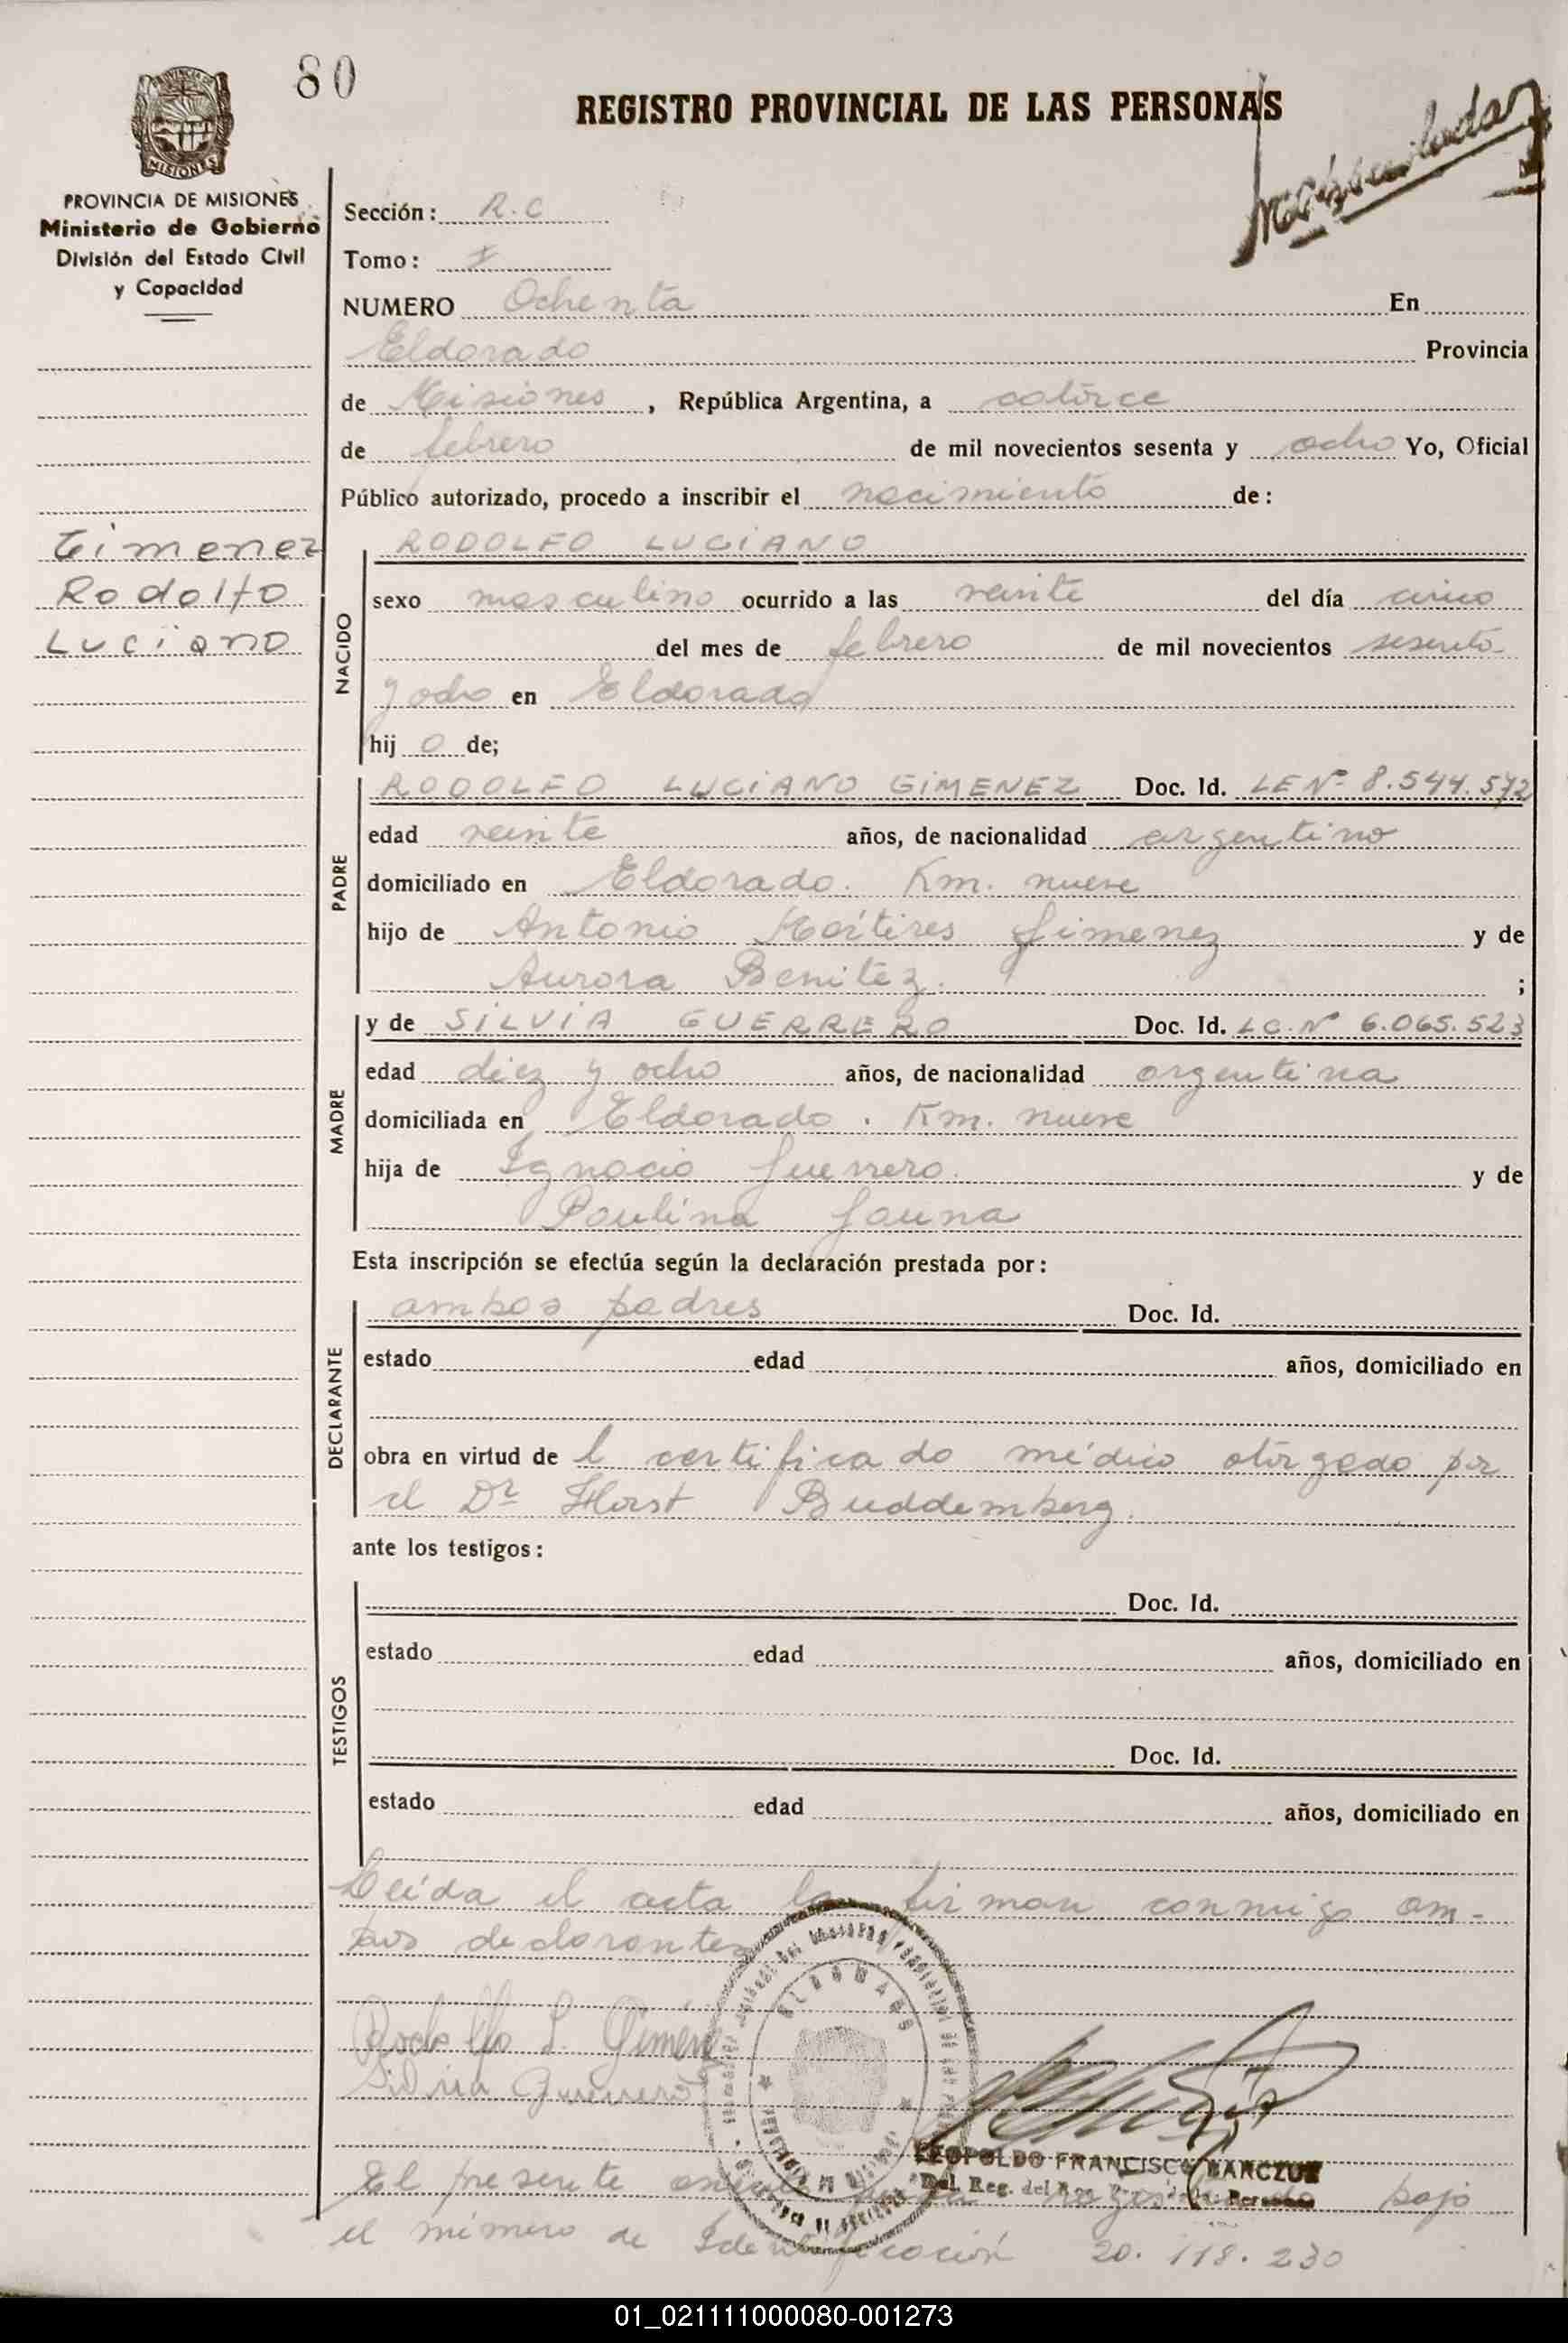 80
REGISTRO PROVINCIAL DE LAS PERSONAS
PROVINCIA DE MISIONES
MISIONES
PROVINCIA DE MISIONES
Ministerio de Gobierno
División del Estado Civil
y Capacidad
Sección: R.C
Tomo: I
NUMERO Ochenta En
Eldorado Provincia
de Misiones, República Argentina, a catorce
de febrero de mil novecientos sesenta y ocho Yo, Oficial
Público autorizado, procedo a inscribir el nacimiento de:
Gimenez
Rodolfo
Luciano
NACIDO
RODOLFO LUCIANO
sexo masculino ocurrido a las veinte del día cinco
del mes de febrero de mil novecientos sesenta
y ocho en Eldorado
hij o de;
PADRE
RODOLFO LUCIANO GIMENEZ Doc. Id. LE Nº 8.544.572
edad veinte años, de nacionalidad argentino
domiciliado en Eldorado. Km. nueve
hijo de Antonio Mártires Gimenez y de
Aurora Benitez. ;
MADRE
y de SILVIA GUERRERO Doc. Id. LC. Nº 6.065.523
edad diez y ocho años, de nacionalidad argentina
domiciliada en Eldorado. Km. nueve
hija de Ignacio Guerrero. y de
Paulina Gauna
Esta inscripción se efectúa según la declaración prestada por:
DECLARANTE
ambos padres Doc. Id.
estado edad años, domiciliado en
obra en virtud de l certificado médico otorgado por
el Dr Horst Buddemberg.
ante los testigos:
TESTIGOS
Doc. Id.
estado edad años, domiciliado en
Doc. Id.
estado edad años, domiciliado en
Leída el acta la firman conmigo am-
bos declarantes
Rodolfo L. Gimenez
Silvia Guerrero
ELDORADO
LEOPOLDO FRANCISCO
Del. Reg. del
El presente bajo
el número de Identificación 20.118.230
01_021111000080-001273